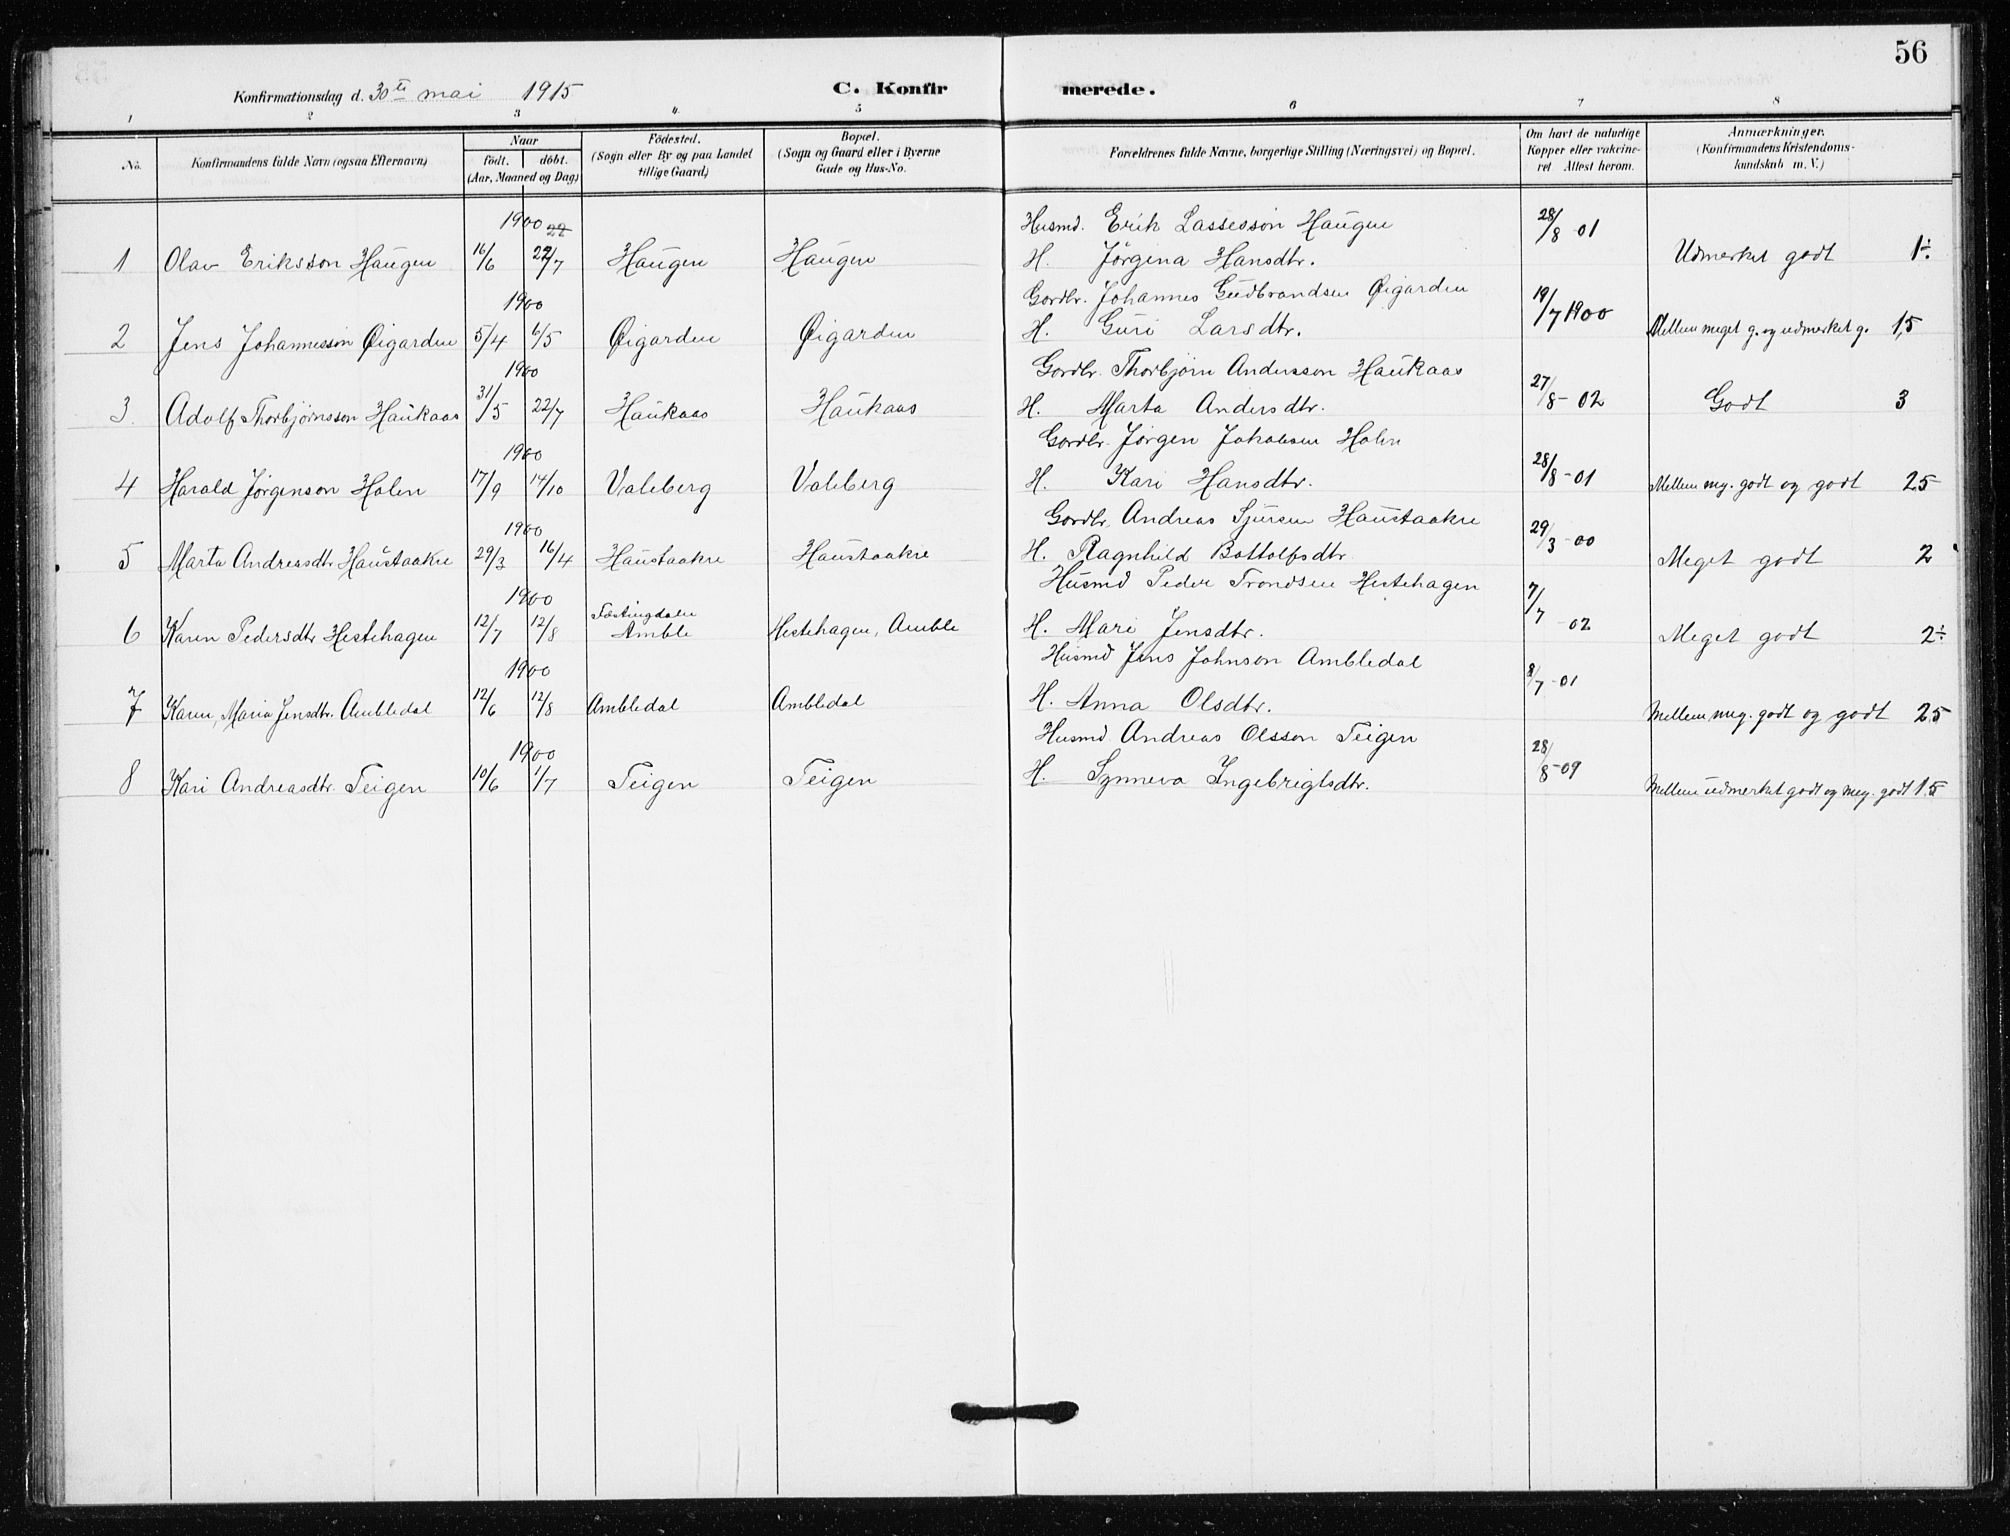 56
Konfirmationsdag d. 30te mai 1915 C. Konfirmerede.
1 2 3 4 5 6 7 8
No.
Konfirmandens fulde Navn (ogsaa Efternavn)
Naar
født. døbt.
(Aar, Maaned og Dag)
Födested.
(Sogn eller By og paa Landet
tillige Gaard)
Bopæl.
(Sogn og Gaard eller i Byerne
Gade og Hus-No.
Forældrenes fulde Navne, borgerlige Stilling (Næringsvei) og Bopæl.
Om havt de naturlige
Kopper eller vakcine-
ret Attest herom.
Anmærkninger.
(Konfirmandens Kristendoms-
kundskab m. V.)
1900 22 Husmd. Erik Lassesson Haugen 28/8 01
1 Olav Eriksson Haugen 16/6 22/7 Haugen Haugen H. Jørgina Hansdtr. Udmerket godt 1÷
1900 Gordbr. Johannes Gudbrandsen Øigarden 19/7 1900
2 Jens Johannesson Øigarden 5/4 6/5 Øigarden Øigarden H. Guri Larsdtr. Mellem meget g. og udmerket g. 1,5
1900 Gordbr. Thorbjørn Andersson Haukaas 27/8-02
3. Adolf Thorbjørnsson Haukaas 31/5 22/7 Haukaas Haukaas H. Marta Andersdtr. Godt 3
1900 Gordbr. Jørgen Jakobsen Holen
4 Harald Jørgenson Holen 17/9 14/10 Valeberg Valeberg H. Kari Hansdtr. 28/8-01 Mellem meg. godt og godt 2,5
1900 Gordbr. Andreas Sjursen Haustaakre 29/3-00
5 Marta Andreasdtr. Haustaakre 29/3 16/4 Haustaakre Haustaakre H. Ragnhild Bottolfsdtr. Meget godt 2
1900 Husmd Peder Trondsen Hestehagen 7/7-02
6 Karen Pedersdtr Hestehagen 12/7 12/8 Amble Hestehagen, Amble H. Mari Jensdtr. Meget godt 2÷
1900 Husmd Jens Johnson Ambledal 8/7-01
7 Karen, Maria Jensdtr. Ambledal 12/6 12/8 Ambledal Ambledal H. Anna Olsdtr. Mellem meg. godt og godt 2,5
1900 Husmd Andreas Olsson Teigen 28/8-09
8 Kari Andreasdtr. Teigen 10/6 1/7 Teigen Teigen H. Synneva Ingebrigtsdtr. Mellem udmerket godt og meg. godt 1,5